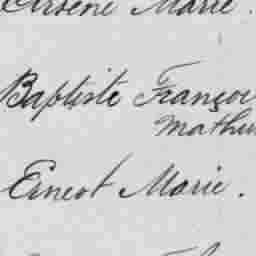 Arsène Marie.
Baptiste Françoi
Mathu
Ernest Marie.